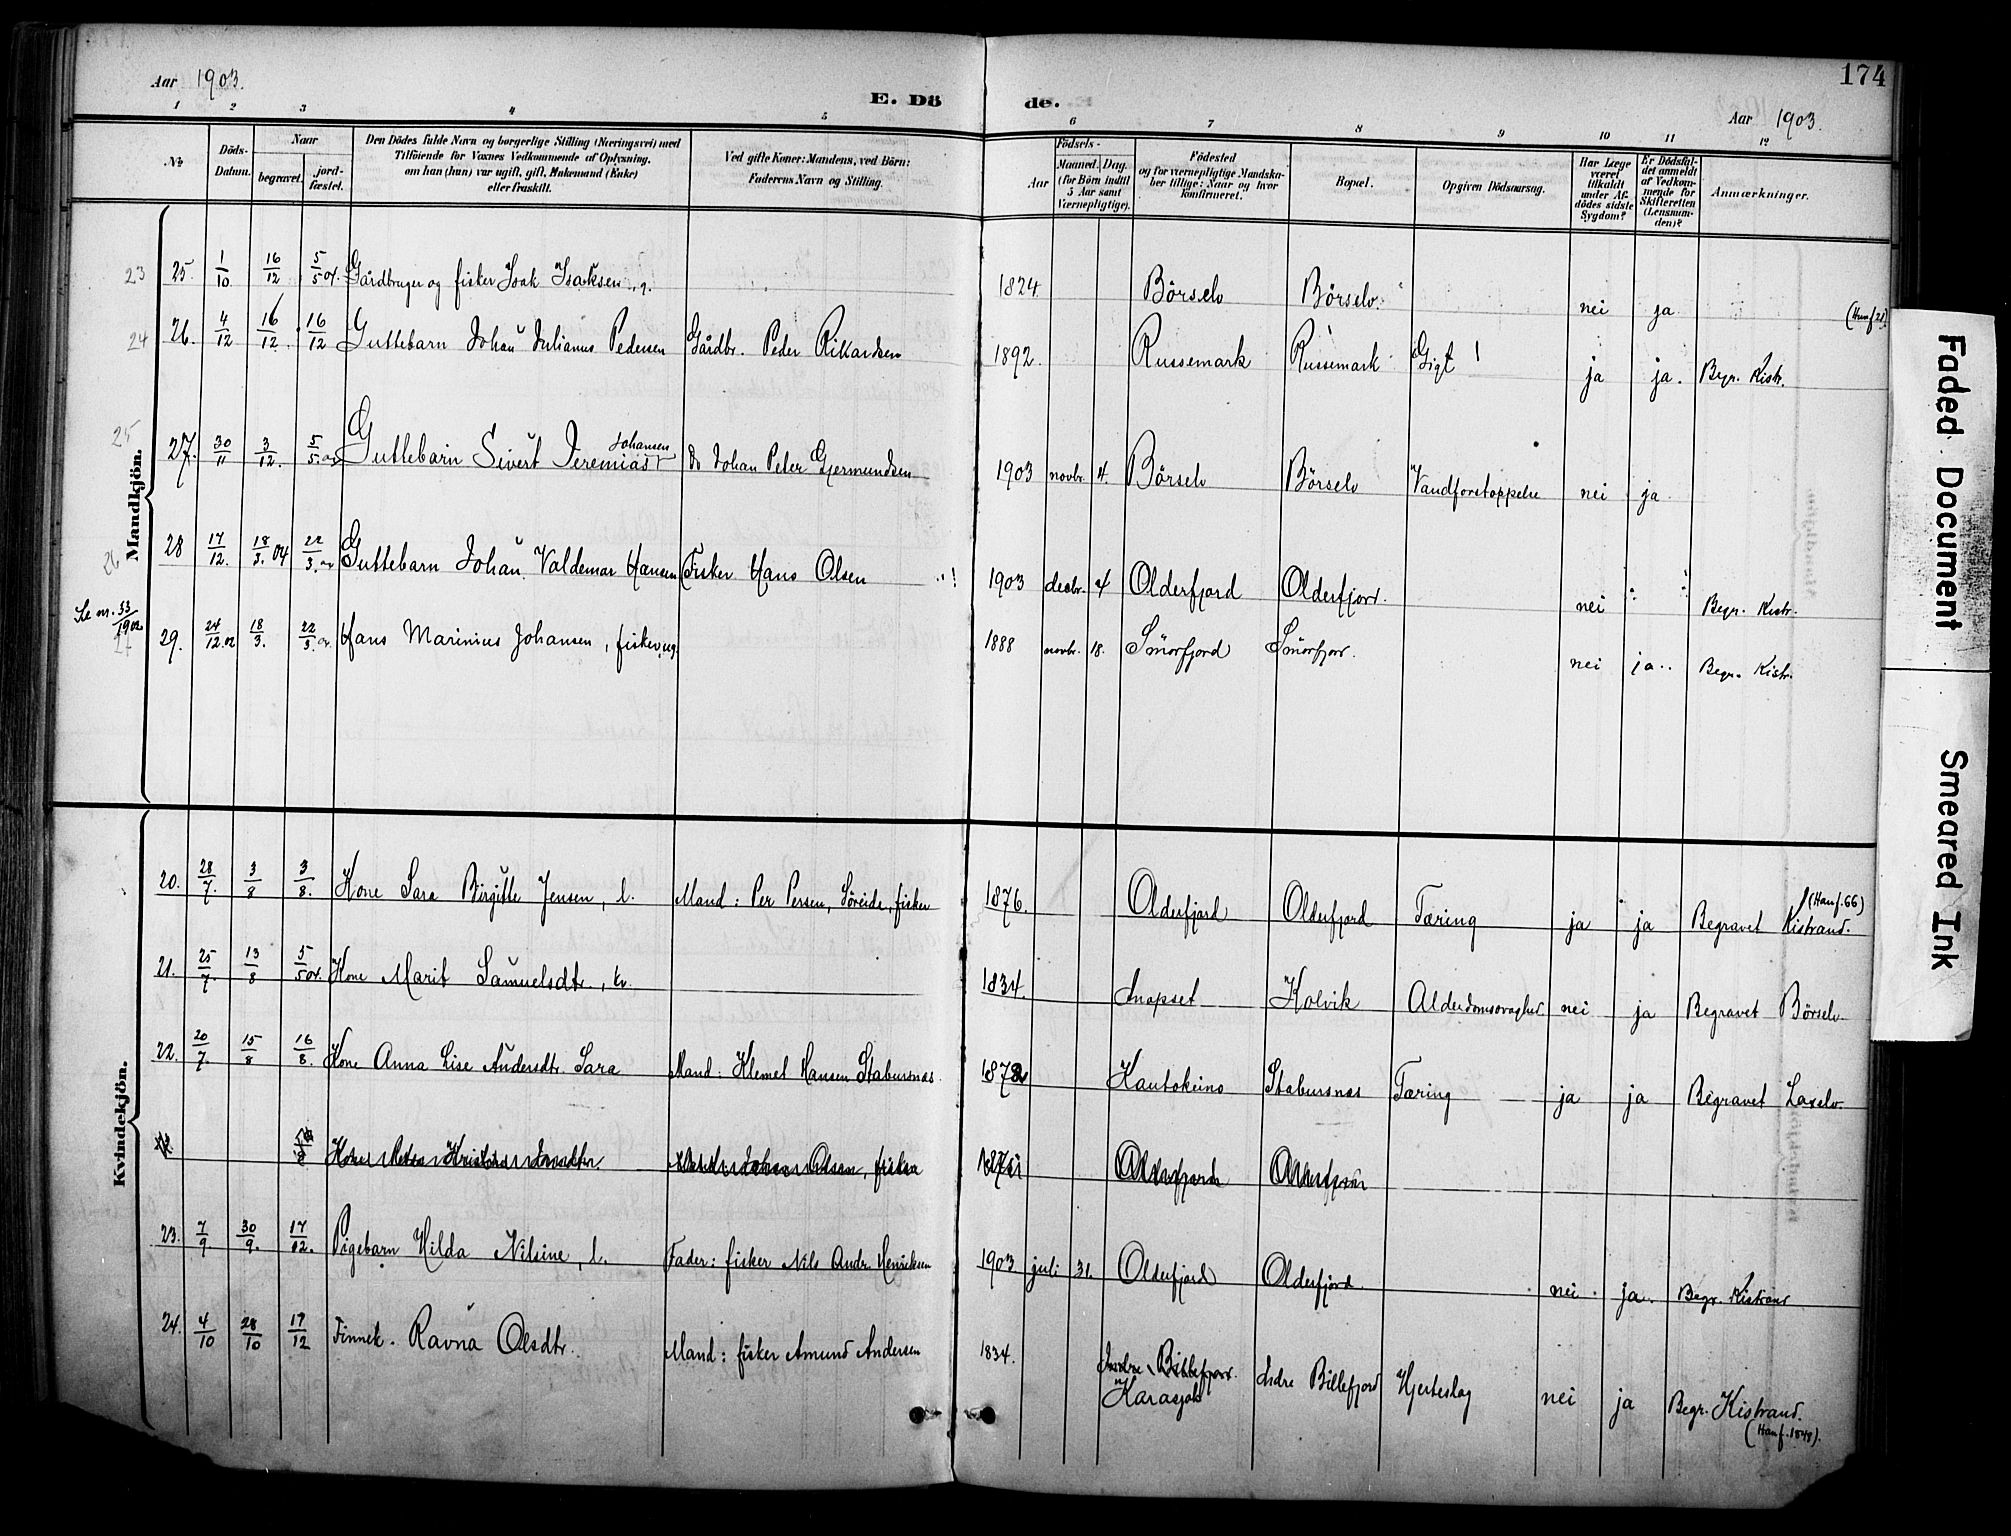 174
Aar 1903.
E. Dö de.
Aar 1903.
1 2 3 4 5 6 7 8 9 10 11 12
No
Döds-Datum.
Naar
begravet.
jord-fæstet.
Den Dödes fulde Navn og borgerlige Stilling (Næringsvei) med
Tilföiende for Voxnes Vedkommende af Oplysning,
om han (hun) var ugift, gift, Enkemand (Enke)
eller fraskilt.
Ved gifte Koner: Mandens, ved Börn:
Faderens Navn og Stilling.
Födsels-
Aar
Maaned. Dag.
(for Börn indtil
5 Aar samt
Værnepligtige).
Födested
og for værnepligtige Mandska-
ber tillige: Naar og hvor
konfirmeret.
Bopæl.
Opgiven Dödsaarsag.
Har Læge
været
tilkaldt
under Af-
dödes sidste
Sygdom?
Er Dödsfal-
det anmeldt
af Vedkom-
mende for
Skifteretten
(Lensman-
den)?
Anmærkninger.
Mandkjön.
23 25 1/10 16/12 5/5 04. Gårdbruger og fisker Isak Isaksen 1824. Börselv Börselv. nei ja
24 26. 4/12 16/12. 16/12 Guttebarn Johan Julianus Pedersen Gårdbr. Peder Rikardsen 1892. Russemark Russemark Gigt ja ja. Begr. Kistr.
25 27. 30/11 3/12. 5/5. Guttebarn Sivert Jeremias Johansen do Johan Peter Gjermundsen 1903 novbr. 4. Börselv Börselv Vandforstoppelse nei ja
26 28 17/12. 18/3. 04 22/3. Guttebarn Johan Valdemar Hansen Fisker Hans Olsen 1903 decbr. 4 Olderfjord Olderfjord. nei Begr. Kistr.
Se nr. 33/1902
27 29. 24/12. 02 18/3. 22/3. Hans Marinius Johansen, fisker, ug. 1888 novbr. 18. Smörfjord Smörfjord. nei ja Begr. Kistr.
Kvindekjön.
20. 28/7. 3/8 3/8. Kone Sara Birgitte Jensen, l. Mand: Per Persen, Söreide, fisker 1876. Olderfjord Olderfjord Tæring ja ja Begravet Kistrand.
21. 25/7. 13/8 5/5 04. Kone Marit Samuelsdtr., kv. 1834. Kolvik nei ja Begravet Börselv
22. 20/7. 15/8 16/8. Kone Anna Lise Andersdtr. Sara Mand: Klemet Hansen Stabursnes. 1872 Kautokeino Stabursnes Tæring ja ja Begravet Laxelv.
23. 7/9. 30/9. 17/12. Pigebarn Hilda Nilsine, l. Fader: fisker Nils Andr. Henriksen 1903 juli 31. Olderfjord Olderfjord nei ja Begr. Kistrand
24. 4/10 28/10 17/12 Finnek. Ravna Olsdtr. Mand: fisker Amund Andersen 1834. Indre Billefjord.
Karasjok Indre Billefjord Hjerteslag nei ja Begr. Kistrand.
Faded Document
Smeared Ink